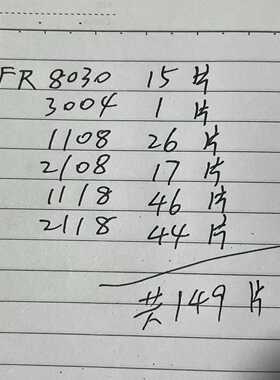 FR 8030 15片
3004 1片
1108 26片
2108 17片
1118 46片
2118 44片
共149片